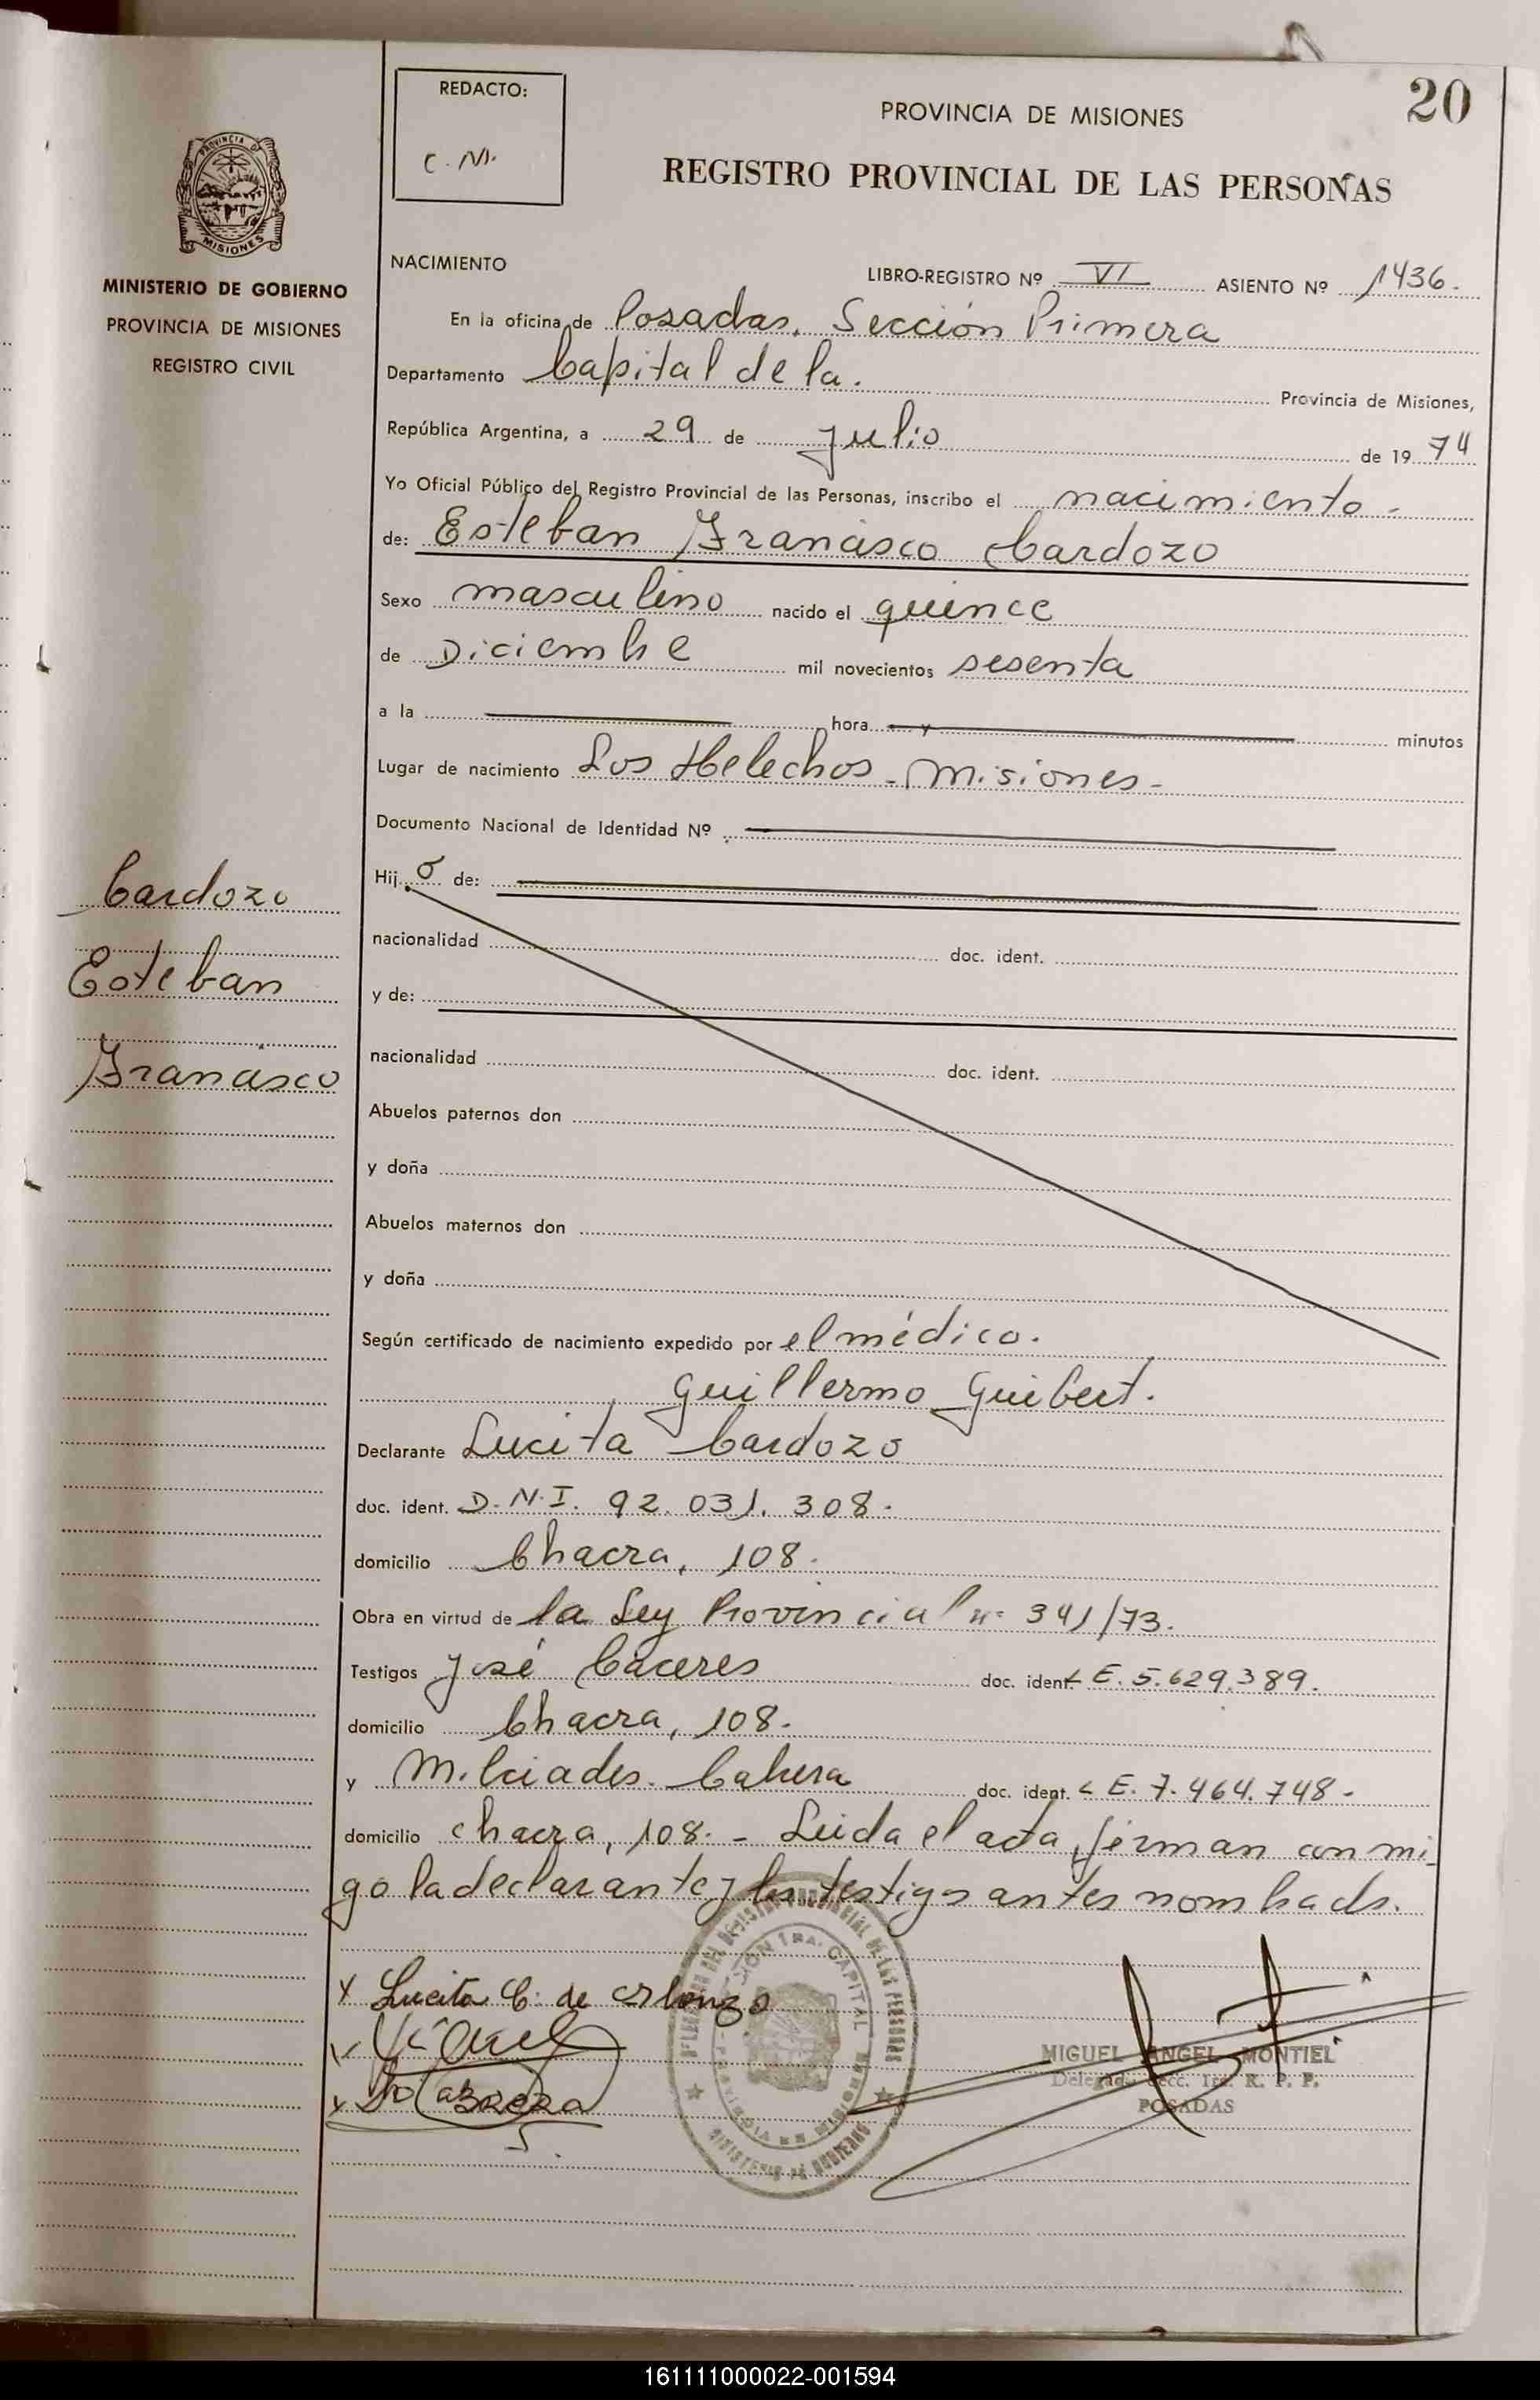 20
REDACTO:
C. M.
PROVINCIA DE MISIONES
REGISTRO PROVINCIAL DE LAS PERSONAS
PROVINCIA DE
MISIONES
MINISTERIO DE GOBIERNO
PROVINCIA DE MISIONES
REGISTRO CIVIL
NACIMIENTO
LIBRO-REGISTRO Nº VI ASIENTO Nº 1436.
En la oficina de Posadas, Sección Primera
Departamento Capital de la. Provincia de Misiones,
República Argentina, a 29 de Julio de 1974
Yo Oficial Público del Registro Provincial de las Personas, inscribo el nacimiento -
de: Esteban Francisco Cardozo
Sexo masculino nacido el quince
de Diciembre mil novecientos sesenta
a la hora y minutos
Lugar de nacimiento Los Helechos - Misiones -
Documento Nacional de Identidad Nº
Cardozo
Esteban
Francisco
Hijo de:
nacionalidad doc. ident.
y de:
nacionalidad doc. ident.
Abuelos paternos don
y doña
Abuelos maternos don
y doña
Según certificado de nacimiento expedido por el médico.
Guillermo Guibert.
Declarante Lucita Cardozo
doc. ident. D.N.I. 92.031.308.
domicilio Chacra, 108.
Obra en virtud de la Ley Provincial nº 341/73.
Testigos José Caceres doc. ident. L E. 5.629.389.
domicilio Chacra, 108.
y Milciades Cabrera doc. ident. L E. 7.464.748 -
domicilio chacra, 108. - Leida el acta, firman con mi_
go la declarante y los testigos antes nombrads.
x Lucita C. de
x Cabrera
MIGUEL ANGEL MONTIEL
Delegado Secc. 1ra. R. P. P.
POSADAS
161111000022-001594